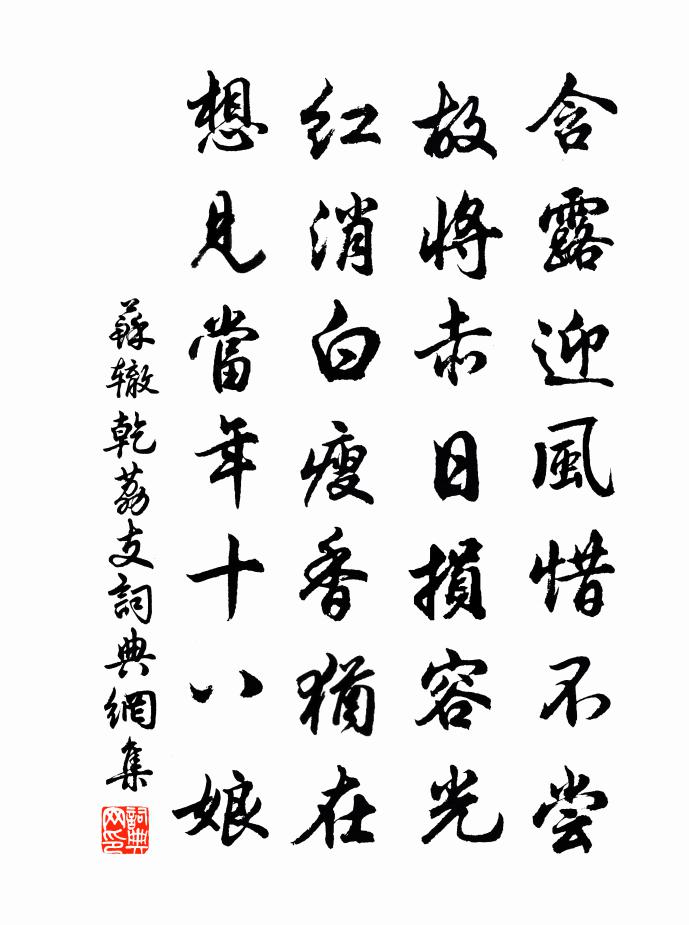 含露迎風惜不尝
故將赤日損容光
紅消白瘦香猶在
想見當年十八娘
蘇辙乾荔支詞典網集
詞典网印